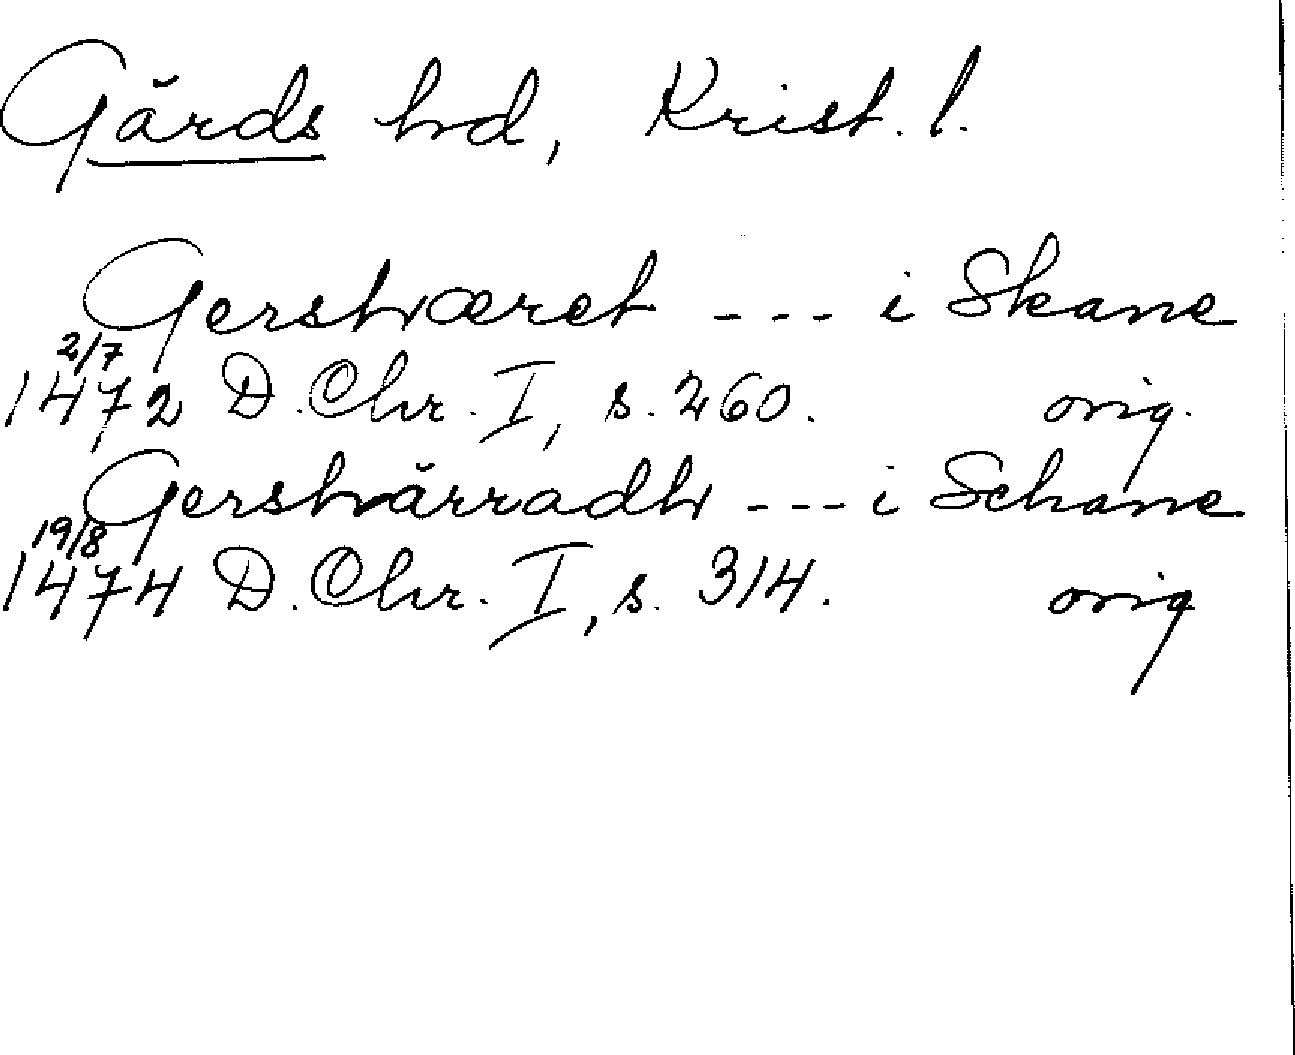 Gärds hd, Krist. l.
Gershæret --- i Skane
2/7
1472 D. Chr. I, s. 260. orig.
Gershärradh --- i Schane
19/8
1474 D. Chr. I, s. 314. orig